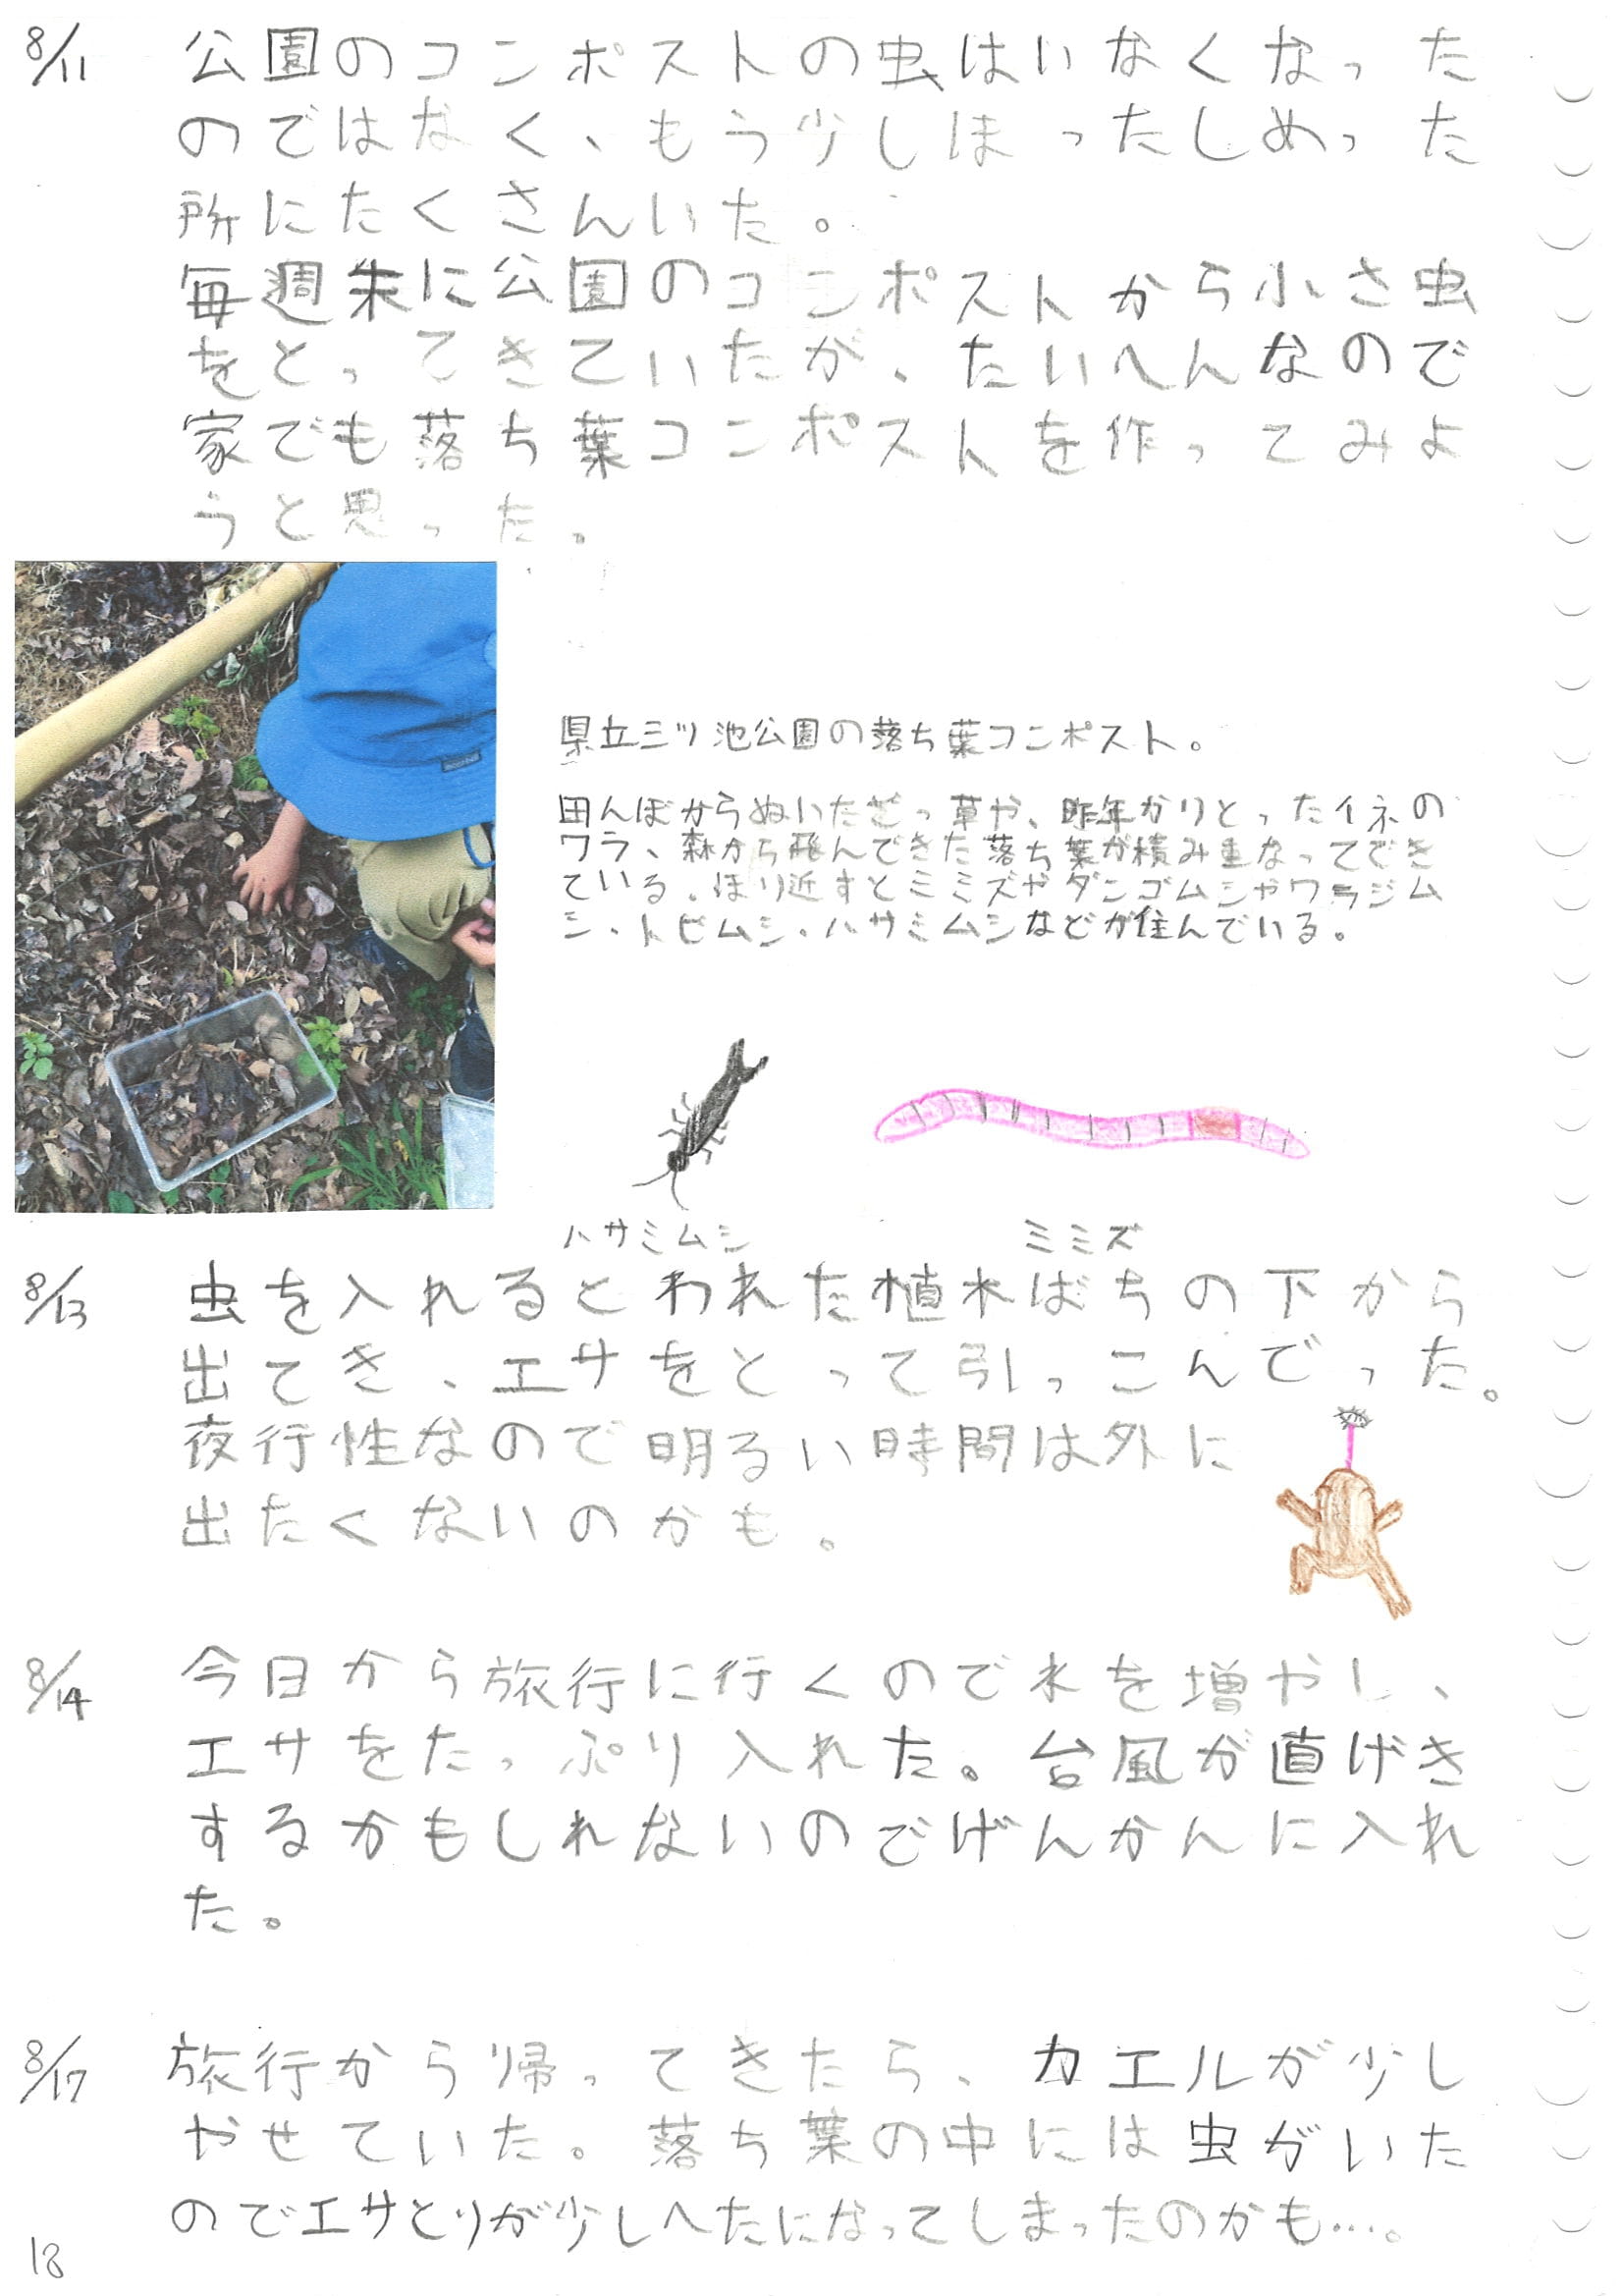 8/11 公園のコンポストの虫はいなくなった
のではなく、もう少しほったしめった
所にたくさんいた。
毎週末に公園のコンポストから小さ虫
をとってきていたが、たいへんなので
家でも落ち葉コンポストを作ってみよ
うと思った。
県立三ツ池公園の落ち葉コンポスト。
田んぼからぬいたざっ草や、昨年かりとったイネの
ワラ、森から飛んできた落ち葉が積み重なってでき
ている。ほり近すとミミズやダンゴムシやワラジム
シ、トビムシ、ハサミムシなどが住んでいる。
ハサミムシ ミミズ
8/13 虫を入れるとわれた植木ばちの下から
出てき、エサをとって引っこんでった。
夜行性なので明るい時間は外に
出たくないのかも。
8/14 今日から旅行に行くので水を増やし、
エサをたっぷり入れた。台風が直げき
するかもしれないのでげんかんに入れ
た。
8/17 旅行から帰ってきたら、カエルが少し
やせていた。落ち葉の中には虫がいた
のでエサとりが少しへたになってしまったのかも…。
18